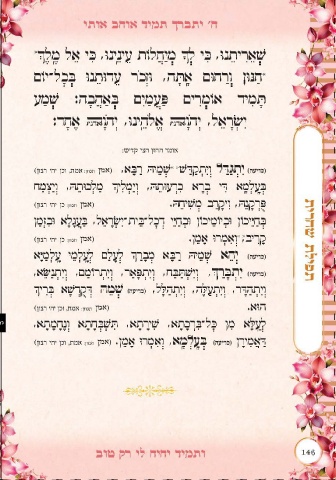 ה' יתברך תמיד אוהב אותי
שְׁאֵרִיתֵנוּ, כִּי לְךָ מְיַחֲלוֹת עֵינֵינוּ, כִּי אֵל מֶלֶךְ
חַנּוּן וְרַחוּם אָתָּה, וּזְכֹר עֵדוּתֵנוּ בְּכָל־יוֹם
תָּמִיד אוֹמְרִים פַּעֲמַיִם בְּאַהֲבָה: שְׁמַע
יִשְׂרָאֵל, יְהֹוָה אֱלֹהֵינוּ, יְהֹוָה אֶחָד:
אומר החזן חצי קדיש:
(כריעה) יִתְגַּדַּל וְיִתְקַדַּשׁ שְׁמֵהּ רַבָּא, (אמן
בְּעָלְמָא דִּי בְרָא כִרְעוּתֵהּ, וְיַמְלִיךְ מַלְכוּתֵהּ, וְיַצְמַח
פֻּרְקָנֵהּ, וִיקָרֵב מְשִׁיחֵהּ. (אמן
בְּחַיֵּיכוֹן וּבְיוֹמֵיכוֹן וּבְחַיֵּי דְכָל־בֵּית־יִשְׂרָאֵל, בַּעֲגָלָא וּבִזְמַן
קָרִיב, וְאִמְרוּ אָמֵן. (אמן
(כריעה) יְהֵא שְׁמֵהּ רַבָּא מְבָרַךְ לְעָלַם לְעָלְמֵי עָלְמַיָּא
(כריעה) יִתְבָּרַךְ, וְיִשְׁתַּבַּח, וְיִתְפָּאַר, וְיִתְרוֹמַם, וְיִתְנַשֵּׂא,
וְיִתְהַדָּר, וְיִתְעַלֶּה, וְיִתְהַלָּל, (כריעה) שְׁמֵהּ דְּקֻדְשָׁא בְּרִיךְ
הוּא. (אמן
לְעֵלָּא מִן כָּל־בִּרְכָתָא, שִׁירָתָא, תֻּשְׁבְּחָתָא וְנֶחֱמָתָא,
דַּאֲמִירָן (כריעה) בְּעָלְמָא, וְאִמְרוּ אָמֵן. (אמן
תפילת שחרית
ותמיד יהיה לי רק טוב
146